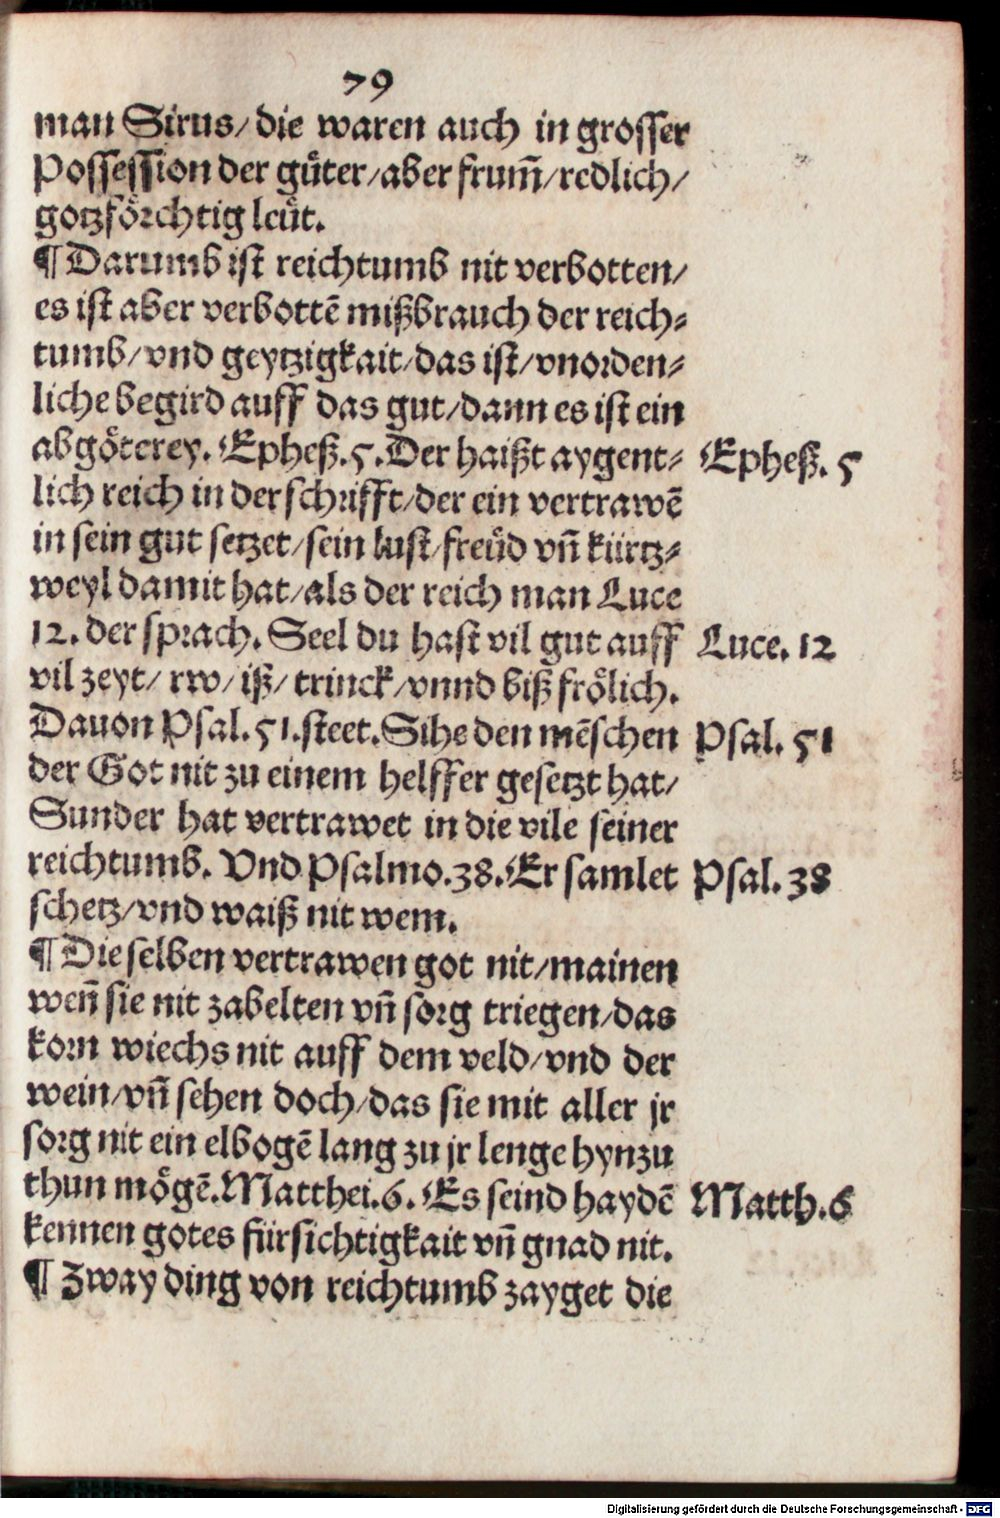 79
man Sirus/ die waren auch in grosser
Possession der guͤter/aber frum̃/redlich/
gotzfoͤrchtig leuͤt.
¶ Darumb ist reichtumb nit verbotten/
es ist aber verbottẽ mißbrauch der reich⸗
tumb/vnd geytzigkait/das ist/vnorden⸗
liche begird auff das gut/dann es ist ein
abgoͤterey. Epheß.5.Der haißt aygent⸗ Epheß. 5
lich reich in der schrifft/der ein vertrawẽ
in sein gut setzet/sein lust/freuͤd vñ kürtz⸗
weyl damit hat/als der reich man Luce
12. der sprach. Seel du hast vil gut auff Luce. 12
vil zeyt/ rw/ iß/ trinck/vnnd biß froͤlich.
Dauon Psal.51.steet.Sihe den mẽschen Psal. 51
der Got nit zu einem helffer gesetzt hat/
Sunder hat vertrawet in die vile seiner
reichtumb. Vnd Psalmo.38.Er samlet Psal. 38
schetz/vnd waiß nit wem.
¶ Die selben vertrawen got nit/mainen
weñ sie nit zabelten vñ sorg triegen/das
korn wiechs nit auff dem veld/vnd der
wein/vñ sehen doch/das sie mit aller jr
sorg nit ein elbogẽ lang zu jr lenge hynzu
thun moͤgẽ.Matthei.6. Es seind haydẽ Matth.6
kennen gotes fürsichtigkait vñ gnad nit.
¶ Zway ding von reichtumb zayget die
Digitalisierung gefördert durch die Deutsche Forschungsgemeinschaft - DFG